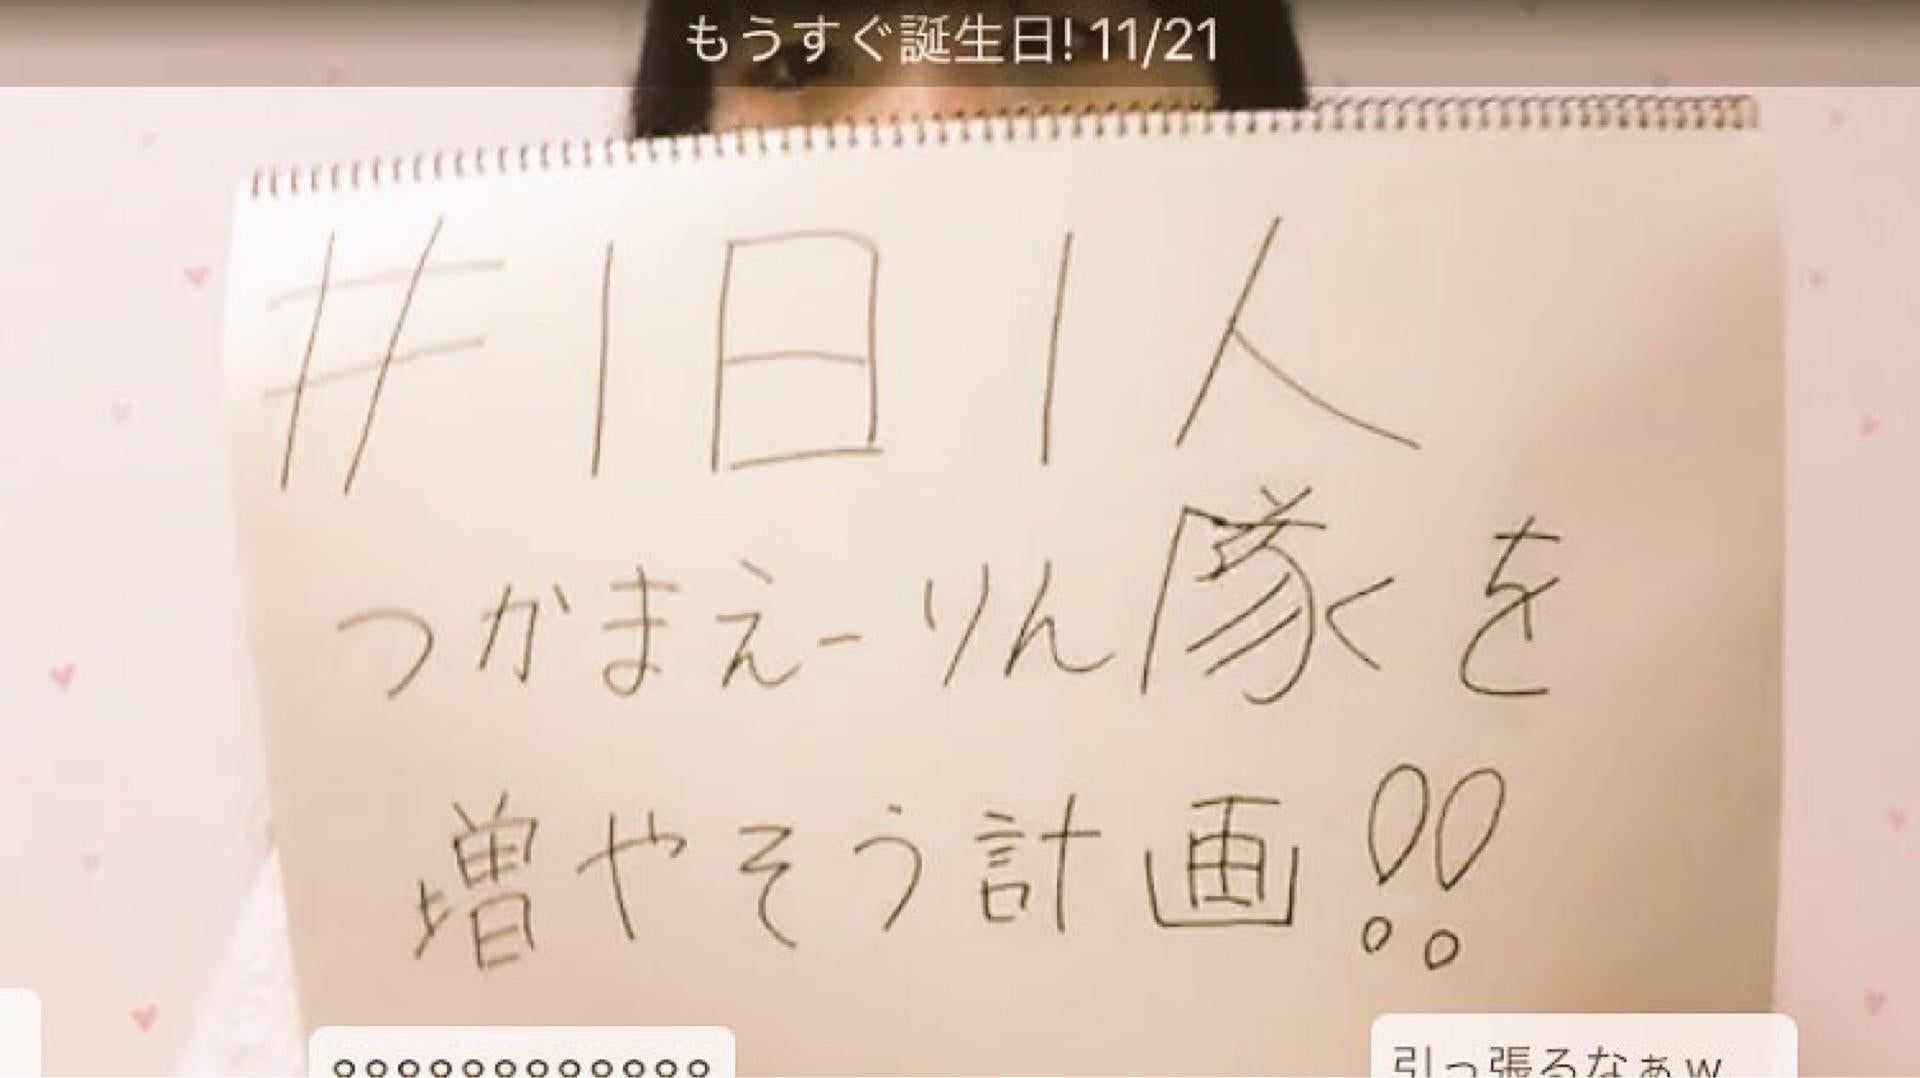 もうすぐ誕生日! 11/21
#1日1人
つかまえーりん隊くを
増やそう計画!!
。。。。。。。。。。。。
引っ張るなぁw